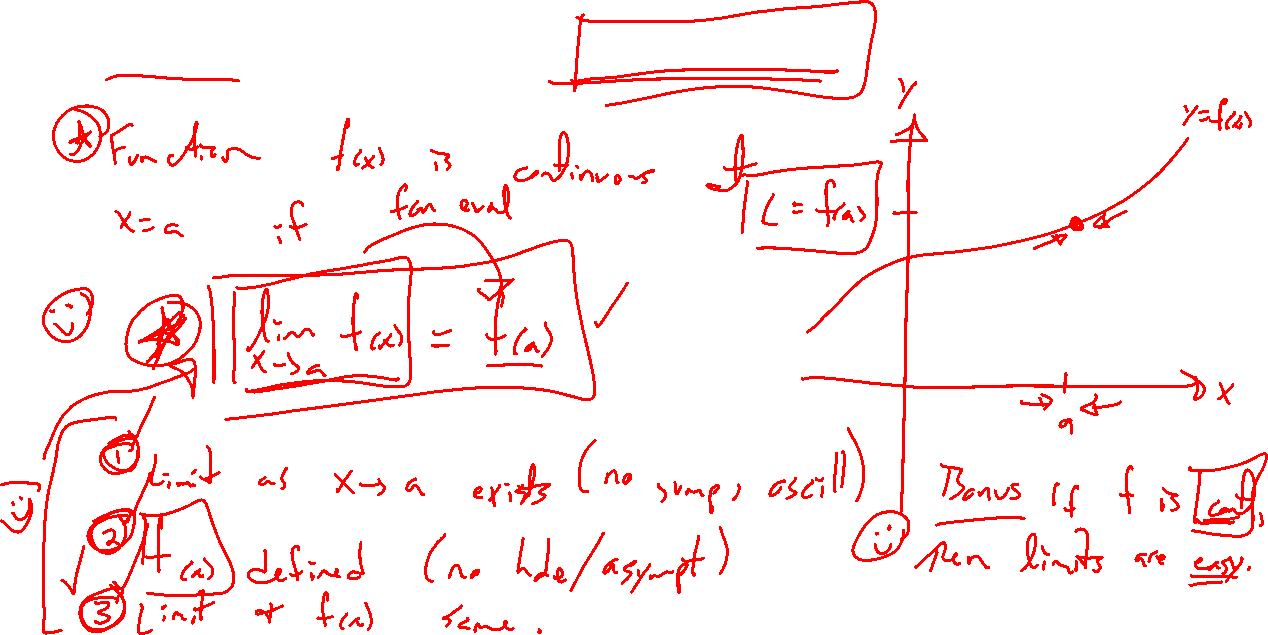 Function f(x) is continuous at
x=a if
fcn eval
L = f(a)
lim x→a f(x) = f(a)
① Limit as x→a exists (no jump, oscill)
② f(a) defined (no hole/asympt)
③ Limit & f(a) same.
Y
y=f(x)
a
X
Bonus if f is cont,
then limits are easy.